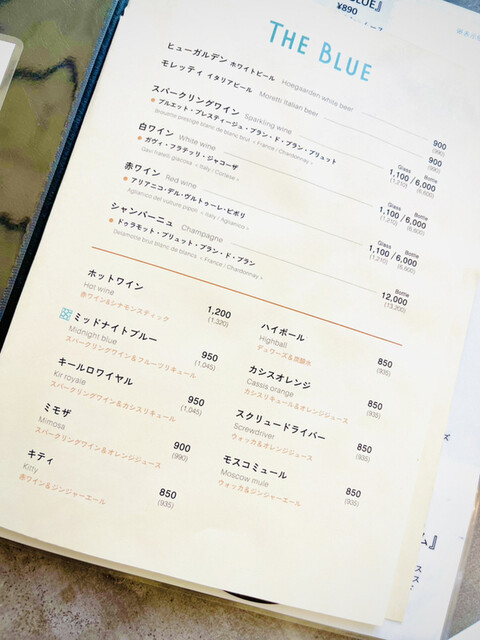 BLUE』
¥890
THE BLUE
ヒューガルデン ホワイトビール Hoegaarden white beer 900
(990)
モレッティ イタリアビール Moretti italian beer 900
(990)
スパークリングワイン Sparkling wine Glass Bottle
ブルエット・プレスティージュ・ブラン・ド・ブラン・ブリュット 1,100 / 6,000
(1,210) (6,600)
白ワイン White wine Glass Bottle
ガヴィ・フラテッリ・ジャコーザ 1,100 / 6,000
Gavi fratelli giacosa < Italy / Cortese > (1,210) (6,600)
赤ワイン Red wine Glass Bottle
アリアニコ・デル・ヴルトゥーレ・ピポリ 1,100 / 6,000
Aglianico del vulture pipoli < Italy / Aglianico > (1,210) (6,600)
シャンパーニュ Champagne Bottle
ドゥラモット・ブリュット・ブラン・ド・ブラン 12,000
Delamotte brut blanc de blancs < France / Chardonnay > (13,200)
ホットワイン 1,200
Hot wine (1,320)
赤ワイン&シナモンスティック
ミッドナイトブルー 950
Midnight blue (1,045)
スパークリングワイン&ブルーフリキュール
キールロワイヤル 950
Kir royale (1,045)
スパークリングワイン&カシスリキュール
ミモザ 900
Mimosa (990)
スパークリングワイン&オレンジジュース
キティ 850
Kitty (935)
赤ワイン&ジンジャーエール
ハイボール 850
Highball (935)
デュワーズ&炭酸水
カシスオレンジ 850
Cassis orange (935)
カシスリキュール&オレンジジュース
スクリュードライバー 850
Screwdriver (935)
ウォッカ&オレンジジュース
モスコミュール 850
Moscow mule (935)
ウォッカ&ジンジャーエール